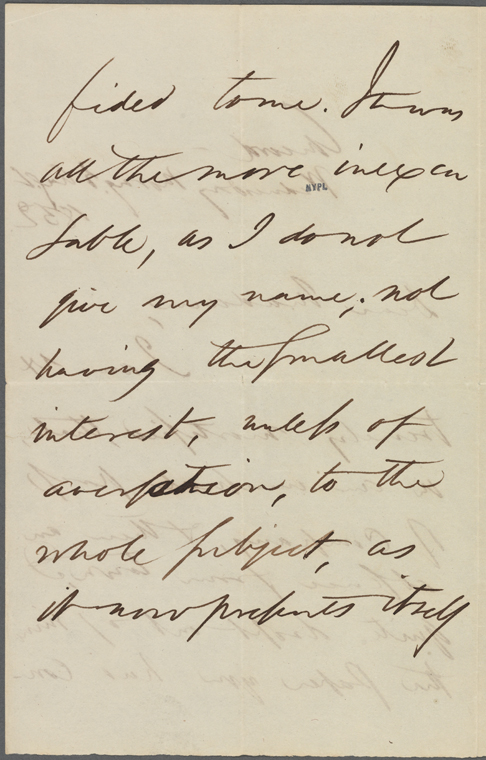 fided to me. It was
all the more inexcu
sable, as I do not
give my name; not
having the smallest
interest, unless of
aversion, to the
whole subject, as
it now presents itself
NYPL